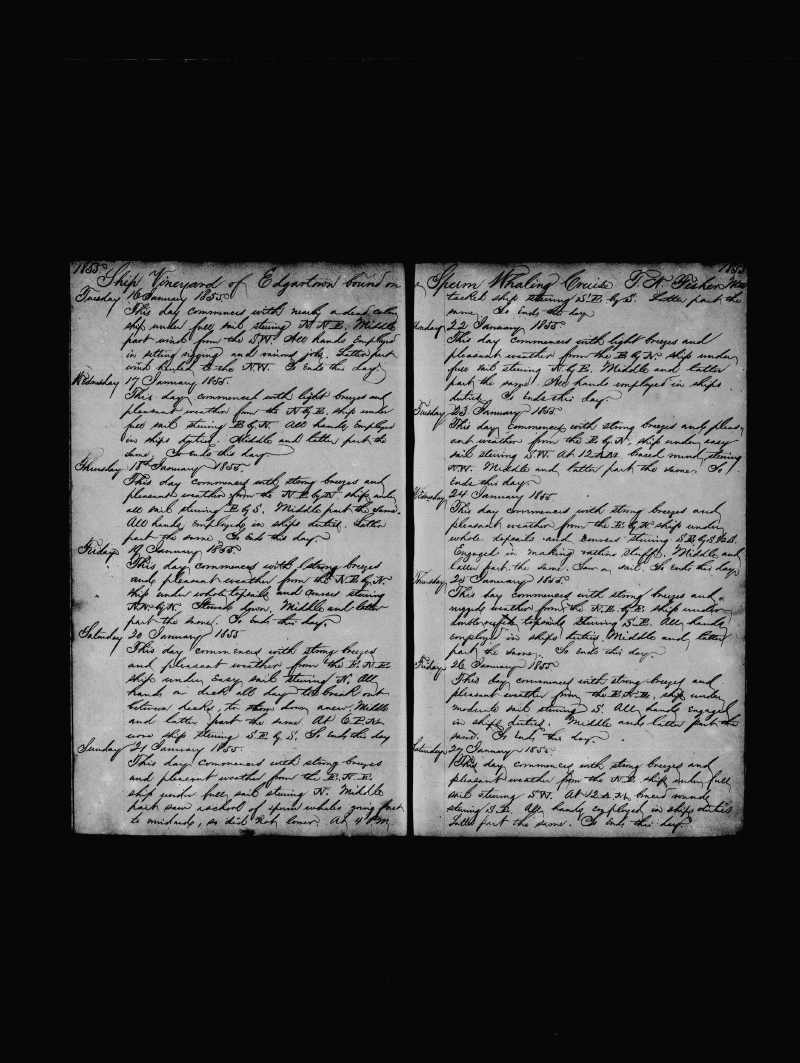 1855
Ship Vineyard of Edgartown bound on
Tuesday 16 January 1855
This day commences with nearly a dead calm
ship under full sail stering N.N.E. Middle
part wind from the S.W. All hands employed
in setting riging and mincing jobs. Latter part
wind hauled to the N.W. So Ends this day
Wednesday 17 January 1855.
This day commences with light breezes and
pleasant weather from the N by E. ship under
full sail stering E by N. All hands Employed
in ships duties. Middle and latter part the
same. So ends this day
Thursday 18th January 1855.
This day commences with strong breezes and
pleasant weather from the N.E. by N. ship under
all sail stering E by S. Middle part the same.
All hands employed in ships duties. Latter
part the same So Ends this day
Friday 19 January 1855.
This day commences with strong breezes
and pleasant weather from the N.E. by N.
ship under whole topsails and courses stering
N.W. by N. Struck down. Middle and latter
part the same. So ends this day.
Saturday 20 January 1855
This day commences with strong breezes
and pleasant weather from the E.N.E
ship under Easy sail stering N. All
hands on deck all day to break out
between decks, to down anew. Middle
and latter part the same At 6 P.M.
wore ship stering S.E. by S. So Ends this day
Sunday 21 January 1855.
This day commences with strong breezes
and pleasant weather from the E.N.E.
ship under full sail stering N. Middle
part saw a school of sperm whales going fast
to windard, so did not lower. At 4 P.M.
1855
Sperm Whaling Cruise T. A. Fisher
tacked ship stering S.E. by S. Latter part the
same So Ends this day
Monday 22 January 1855
This day commences with light breezes and
pleasant weather from the E by N. ship under
full sail stering N by E. Middle and latter
part the same. All hands employed in ships
duties So Ends this day.
Tuesday 23 January 1855
This day commences with strong breezes and pleas-
ant weather from the E by N. ship under easy
sail stering S.W. At 12 A.M. braced round stering
N.W. Middle and latter part the same. So
Ends this day.
Wednesday 24 January 1855
This day commences with strong breezes and
pleasant weather from the E. by N ship under
whole topsails and courses stering S.E by S
Engaged in making ratline stuff. Middle and
latter part the same. Saw a sail. So Ends this day
Thursday 25 January 1855
This day commences with strong breezes and
rugged weather from the N.E. by E. ship under
double reefed topsails stering S.E. All hands
employed in ships duties Middle and latter
part the same. So ends this day.
Friday 26 January 1855.
This day commences with strong breezes and
pleasant weather from the E.N.E. ship under
moderate sail stering S. All hands engaged
in ships duties. Middle and latter part the
same. So Ends this day.
Saturday 27 January 1855
This day commences with strong breezes and
pleasant weather from the N.E. ship under full
sail stering S.W. At 12 A.M. braced round
stering S.E. All hands employed in ships duties
Latter part the same. So Ends this day.